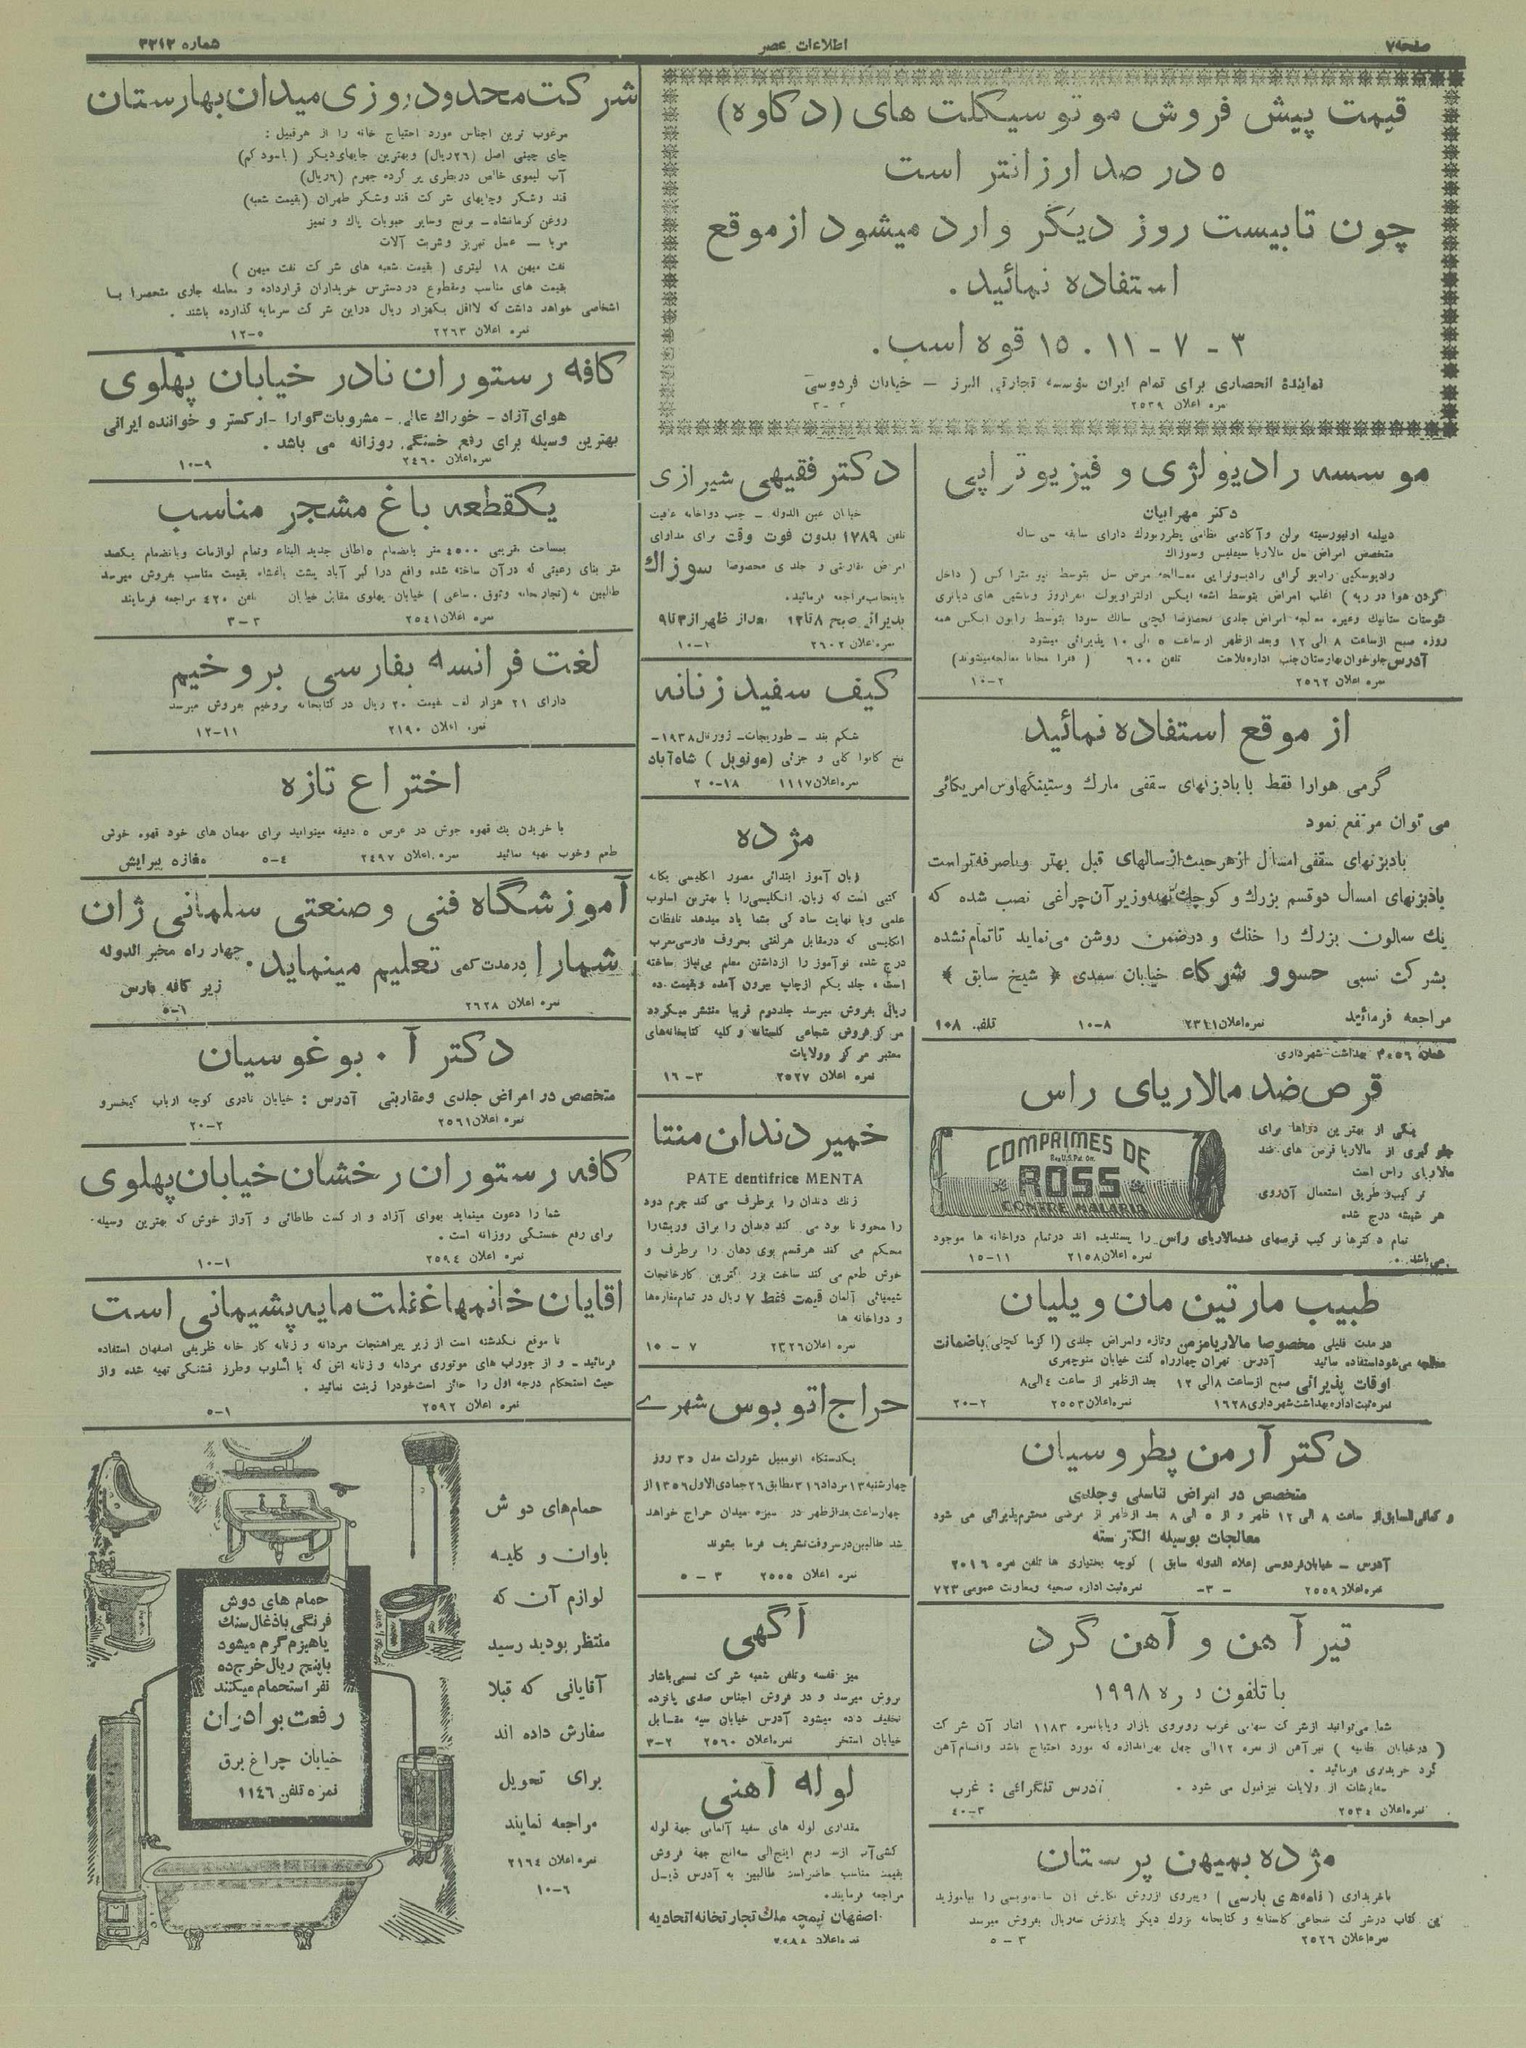 صفحه ۷
اطلاعات عصر
شماره ۳۲۱۲
قیمت پیش فروش موتوسیکلت های (دکاوه)
۵ در صد ارزانتر است
چون تا بیست روز دیگر وارد میشود از موقع
استفاده نمائید.
۳ - ۷ - ۱۱ . ۱۵ قوه اسب.
نماینده انحصاری برای تمام ایران موسسه تجارتی البرز – خیابان فردوسی
نمره اعلان ۲۵۳۹ ۳-۳
موسسه رادیولژی و فیزیوتراپی
دکتر مهرابیان
دیپلمه اونیورسیته برلن و آکادمی نظامی پطرزبورک دارای سابقه سی ساله
متخصص امراض سل مالاریا سیفلیس وسوزاك
آدرس جلوخوان بهارستان جنب اداره فلاحت تلفن ۶۰۰ ( فقرا مجانا معالجه میشوند)
نمره اعلان ۲۵۶۲ ۲-۱۰
از موقع استفاده نمائید
گرمی هوارا فقط با بادبزنهای سقفی مارك وستینگهاوس امریکائی
می توان مرتفع نمود
بادبزنهای سقفی امسال از هر حیث از سالهای قبل بهتر و باصرفه تر است
بادبزنهای امسال دو قسم بزرك و کوچك تهیه وزیر آن چراغی نصب شده که
یك سالون بزرك را خنك و در ضمن روشن می نماید تا تمام نشده
بشرکت نسبی حسو و شرکاء خیابان سعدی ﴿ شیخ سابق ﴾
مراجعه فرمائید نمره اعلان ۲۳۴۱ ۸-۱۰ تلفن ۱۰۸
بهداشت شهرداری
قرص ضد مالاریای راس
یکی از بهترین دواها برای
جلوگیری از مالاریا قرص های ضد
مالاریای راس است
ترکیب و طریق استعمال آن روی
هر شیشه درج شده
COMPRIMES DE
Reg U.S. Pat. On.
ROSS
CONTRE MALARIA
تمام دکترها ترکیب قرصهای ضد مالاریای راس را پسندیده اند در تمام دواخانه ها موجود
می باشد.
نمره اعلان ۲۱۵۸ ۱۱-۱۵
طبیب مارتین مان ویلیان
در مدت قلیلی مخصوصا مالاریا مزمن وتازه وامراض جلدی (اگزما کچلی) باضمانت
معالجه می شود استفاده نمائید آدرس تهران چهارراه کنت خیابان منوچهری
اوقات پذیرائی صبح از ساعت ۸ الی ۱۲ بعد از ظهر از ساعت ۴ الی ۸
نمره ثبت اداره بهداشت شهرداری ۱۶۲۸ نمره اعلان ۲۵۵۳ ۲-۲۰
دکتر آرمن پطروسیان
متخصص در امراض تناسلی وجلدی
و کمافی السابق از ساعت ۸ الی ۱۲ ظهر و از ۵ الی ۸ بعد از ظهر از مرضی محترم پذیرائی می شود
معالجات بوسیله الکتریسته
آدرس – خیابان فردوسی (علاء الدوله سابق ) کوچه بختیاری ها تلفن نمره ۲۰۱۶
نمره اعلان ۲۵۵۹ -۳- نمره ثبت اداره صحیه ومعاونت عمومی ۷۲۳
تیرآهن و آهن گرد
با تلفون نمره ۱۹۹۸
شما می توانید از شرکت سهامی غرب روبروی بازار ویا بانمره ۱۱۸۳ انبار آن شرکت
( در خیابان نظامیه ) تیر آهن از نمره ۱۲ الی چهل بهر اندازه که مورد احتیاج باشد واقسام آهن
گرد خریداری فرمائید .
سفارشات از ولایات نیز قبول می شود . آدرس تلگرافی : غرب
نمره اعلان ۲۵۳۴ ۳-۴۰
مژده بمیهن پرستان
با خریداری ( نامه های پارسی ) وپیروی از روش نگارش آن ساده نویسی را بیاموزید
این کتاب در شرکت شجاعی گلستانه و کتابخانه بزرك دیگر با ارزش سه ریال بفروش میرسد
نمره اعلان ۲۵۲۶ ۳-۵
دکتر فقیهی شیرازی
خیابان عین الدوله – جنب دواخانه عافیت
تلفن ۱۷۸۹ بدون فوت وقت برای مداوای
امراض مقاربتی و جلدی مخصوصا سوزاك
باینجانب مراجعه فرمائید.
پذیرائی صبح ۸ تا ۱۲ بعد از ظهر از ۳ تا ۹
نمره اعلان ۲۶۰۲ ۱-۱۰
کیف سفید زنانه
شکم بند – طوریجات – ژورنال ۱۹۳۸ -
نخ کاموا کلی و جزئی (مونوپل ) شاه آباد
نمره اعلان ۱۱۱۷ ۱۸-۲۰
مژده
زبان آموز ابتدائی مصور انگلیسی یگانه
کتبی است که زبان انگلیسی را با بهترین اسلوب
علمی وبا نهایت سادگی بشما یاد میدهد تلفظات
انگلیسی که در مقابل هر لغتی بحروف فارسی معرب
درج شده نوآموز را از داشتن معلم بی نیاز ساخته
است، جلد یکم از چاپ بیرون آمده وبقیمت ده
ریال بفروش میرسد جلد دوم قریبا منتشر میگردد
مرکز فروش شجاعی گلستانه و کلیه کتابخانه های
معتبر مرکز وولایات
نمره اعلان ۲۵۲۷ ۳-۱۶
خمیر دندان منتا
PATE dentifrice MENTA
زنك دندان را برطرف می کند جرم دود
را محو و نابود می کند دندان را براق وریشه را
محکم می کند هر قسم بوی دهان را برطرف و
خوش طعم می کند ساخت بزرگترین کارخانجات
شیمیائی آلمان قیمت فقط ۷ ریال در تمام مغازه ها
و دواخانه ها
نمره اعلان ۲۳۲۶ ۷ – ۱۰
حراج اتوبوس شهری
یکدستگاه اتومبیل شورلت مدل ۳۵ روز
چهارشنبه ۱۳ مرداد ۳۱۶ مطابق ۲۶ جمادی الاول ۱۳۵۶ از
چهار ساعت بعد از ظهر در سبزه میدان حراج خواهد
شد طالبین در سر وقت تشریف فرما بشوند
نمره اعلان ۲۵۵۵ ۳ – ۵
آگهی
میز قفسه وتلفن شعبه شرکت نسبی باشار
بفروش میرسد و در فروش اجناس صدی پانزده
تخفیف داده میشود آدرس خیابان سپه مقابل
خیابان استخر نمره اعلان ۲۵۶۰ ۲-۳
لوله آهنی
مقداری لوله های سفید آلمانی جهة لوله
کشی آب از سه ربع اینج الی سه اینج جهة فروش
بقیمت مناسب حاضر است طالبین به آدرس ذیل
مراجعه فرمایند.
اصفهان تیمچه ملك تجارتخانه اتحادیه
نمره اعلان
شرکت محدود روزی میدان بهارستان
مرغوب ترین اجناس مورد احتیاج خانه را از هر قبیل :
چای چینی اصل (۲۶ ریال) وبهترین چایهای دیگر ( با سود کم)
آب لیموی خالص در بطری پر کرده جهرم (۶ ریال)
قند وشکر وچایهای شرکت قند وشکر طهران (بقیمت شعبه)
روغن کرمانشاه – برنج وسایر حبوبات پاك و تمیز
مربا – عسل تبریز وشربت آلات
نفت میهن ۱۸ لیتری ( بقیمت شعبه های شرکت نفت میهن )
بقیمت های مناسب ومقطوع در دسترس خریداران قرار داده و معامله جاری منحصرا با
اشخاصی خواهد داشت که لااقل یکهزار ریال در این شرکت سرمایه گذارده باشند .
نمره اعلان ۲۲۶۳ ۵-۱۲
کافه رستوران نادر خیابان پهلوی
هوای آزاد – خوراك عالی – مشروبات گوارا – ارکستر و خواننده ایرانی
بهترین وسیله برای رفع خستگی روزانه می باشد .
نمره اعلان ۲۴۶۰ ۹-۱۰
یکقطعه باغ مشجر مناسب
بمساحت تقریبی ۴۵۰۰ متر بانضمام ۵ اطاق جدید البناء وتمام لوازمات وبانضمام یکصد
متر بنای رعیتی که در آن ساخته شده واقع در اکبر آباد پشت باغشاه بقیمت مناسب بفروش میرسد
طالبین به (تجارتخانه وثوق ساعی ) خیابان پهلوی مقابل خیابان تلفن ۴۲۰ مراجعه فرمایند
نمره اعلان ۲۵۴۱ ۳ – ۳
لغت فرانسه بفارسی بروخیم
دارای ۲۱ هزار لغت قیمت ۲۰ ریال در کتابخانه بروخیم بفروش میرسد
نمره اعلان ۲۱۹۰ ۱۱-۱۲
اختراع تازه
با خریدن یك قهوه جوش در عرض ۵ دقیقه میتوانید برای مهمان های خود قهوه خوش
طعم وخوب تهیه نمائید نمره اعلان ۲۴۹۷ ۴-۵ مغازه پیرایش
آموزشگاه فنی و صنعتی سلمانی ژان
شمارا در مدت کمی تعلیم مینماید. چهار راه مخبر الدوله
زیر کافه پارس
نمره اعلان ۲۶۲۸ ۱-۵
دکتر آ . بوغوسیان
متخصص در امراض جلدی ومقاربتی آدرس : خیابان نادری کوچه ارباب کیخسرو
نمره اعلان ۲۵۶۱ ۲-۲۰
کافه رستوران رخشان خیابان پهلوی
شما را دعوت مینماید بهوای آزاد و ارکست طاطائی و آواز خوش که بهترین وسیله
برای رفع خستگی روزانه است .
نمره اعلان ۲۵۹۴ ۱-۱۰
آقایان خانمها غفلت مایه پشیمانی است
تا موقع نگذشته است از زیر پیراهنجات مردانه و زنانه کار خانه ظریفی اصفهان استفاده
فرمائید – و از جوراب های موتوری مردانه و زنانه اش که با اسلوب وطرز قشنگی تهیه شده واز
حیث استحکام درجه اول را حائز است خودرا زینت نمائید .
نمره اعلان ۲۵۹۲ ۱-۵
حمام های دوش
باوان و کلیه
لوازم آن که
منتظر بودید رسید
آقایانی که قبلا
سفارش داده اند
برای تحویل
مراجعه نمایند
نمره اعلان ۲۱۶۴
۶-۱۰
حمام های دوش
فرنگی باذغال سنك
یاهیزم گرم میشود
با پنج ریال خرج ده
نفر استحمام میکنند
رفعت برادران
خیابان چراغ برق
نمره تلفن ۱۱۴۶